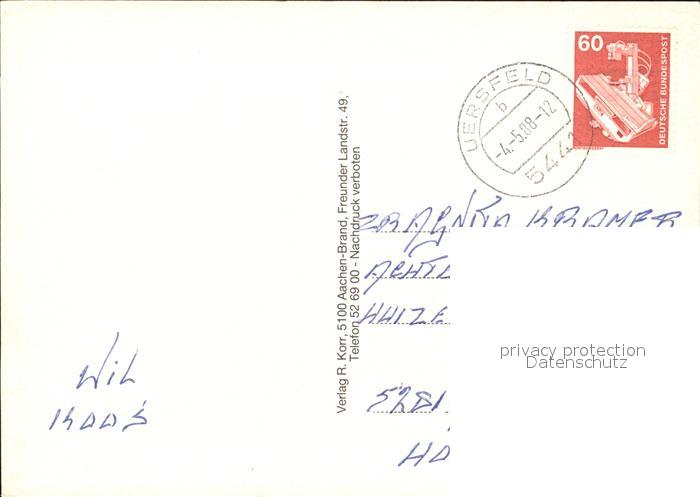 60
DEUTSCHE BUNDESPOST
UERSFELD
b
-4.-5.88-12
544
Verlag R. Korr, 5100 Aachen-Brand, Freunder Landstr. 49,
Telefon 52 69 00 - Nachdruck verboten
KRAMER
ACHTL
HUIZE
5281
HO
privacy protection
Datenschutz
WiL
KOOS